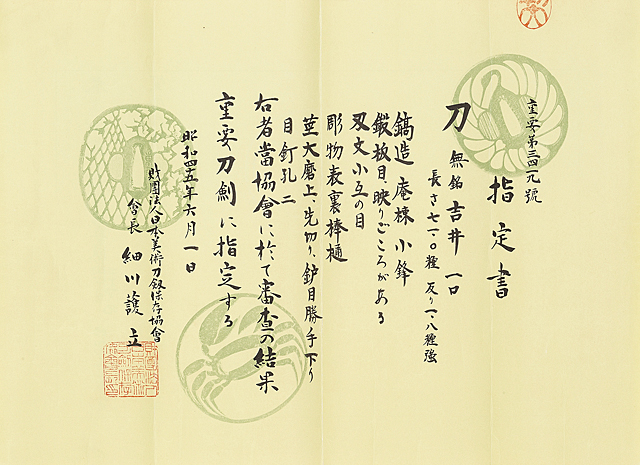 重要第三四一九號
指定書
刀 無銘 吉井 一口
長さ七一・〇糎 反り一・八糎強
鎬造 庵棟 小鋒
鍛板目映りごころがある
刃文小互の目
彫物表裏棒樋
莖大磨上、先切り、鈩目勝手下り
目釘孔 二
右者當協會に於て審査の結果
重要刀劍に指定する
昭和四五年六月一日
財團法人日本美術刀剣保存協會
會長 細川護立